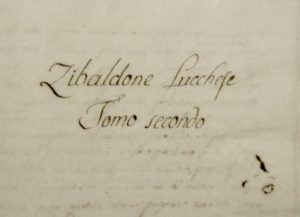 Zibaldone Lucchese
Tomo secondo